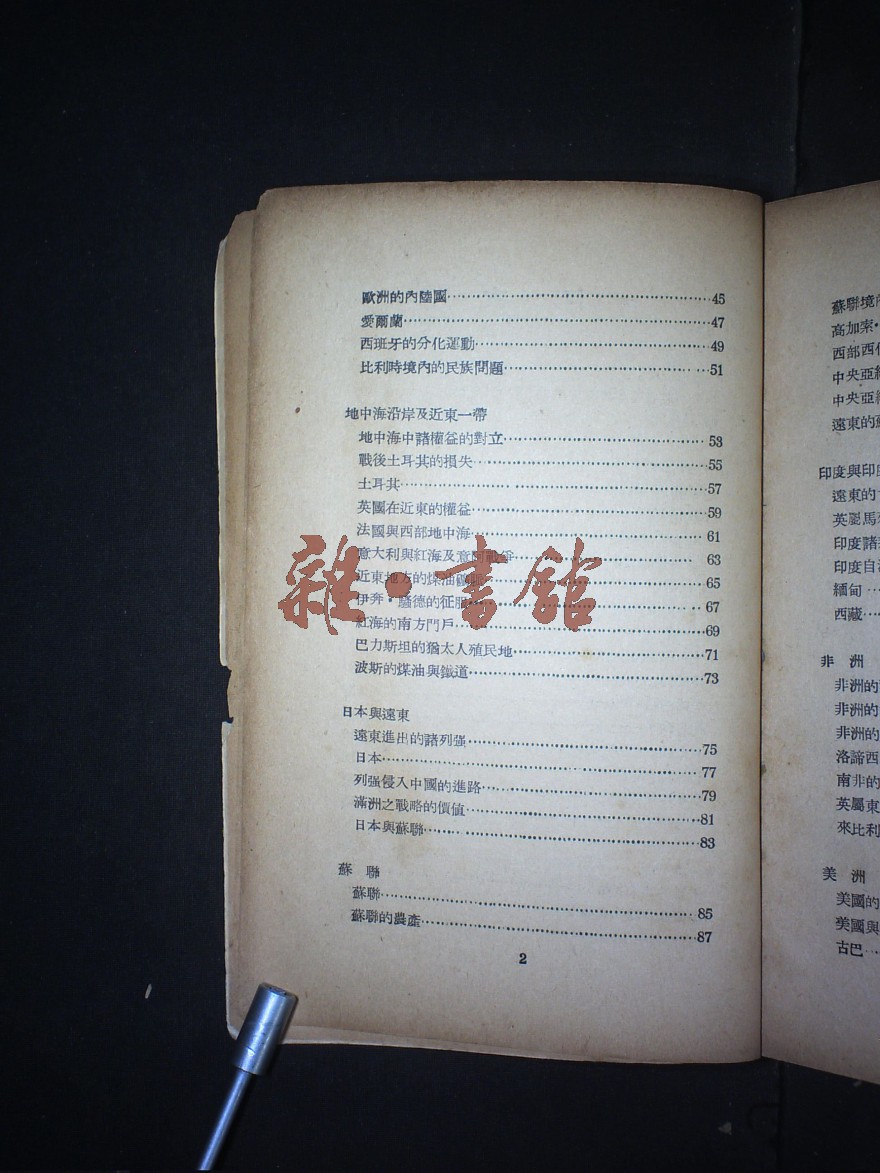 歐洲的內陸國……45
愛爾蘭……47
西班牙的分化運動……49
比利時境內的民族問題……51
地中海沿岸及近東一帶
地中海中諸權益的對立……53
戰後土耳其的損失……55
土耳其……57
英國在近東的權益……59
法國與西部地中海……61
意大利與紅海及意阿戰爭……63
近東地方的煤油……65
伊奔・騷德的征服……67
紅海的南方門戶……69
巴力斯坦的猶太人殖民地……71
波斯的煤油與鐵道……73
日本與遠東
遠東進出的諸列强……75
日本……77
列强侵入中國的進路……79
滿洲之戰略的價値……81
日本與蘇聯……83
蘇聯
蘇聯……85
蘇聯的農產……87
2
雜・書館
蘇聯境
高加索・
西部西
中央亞
中央亞
遠東的
印度與印
遠東的
英屬馬
印度諸
印度自
緬甸…
西藏…
非洲
非洲的
非洲的
非洲的
洛諦西
南非的
英屬東
來比利
美洲
美國的
美國與
古巴…